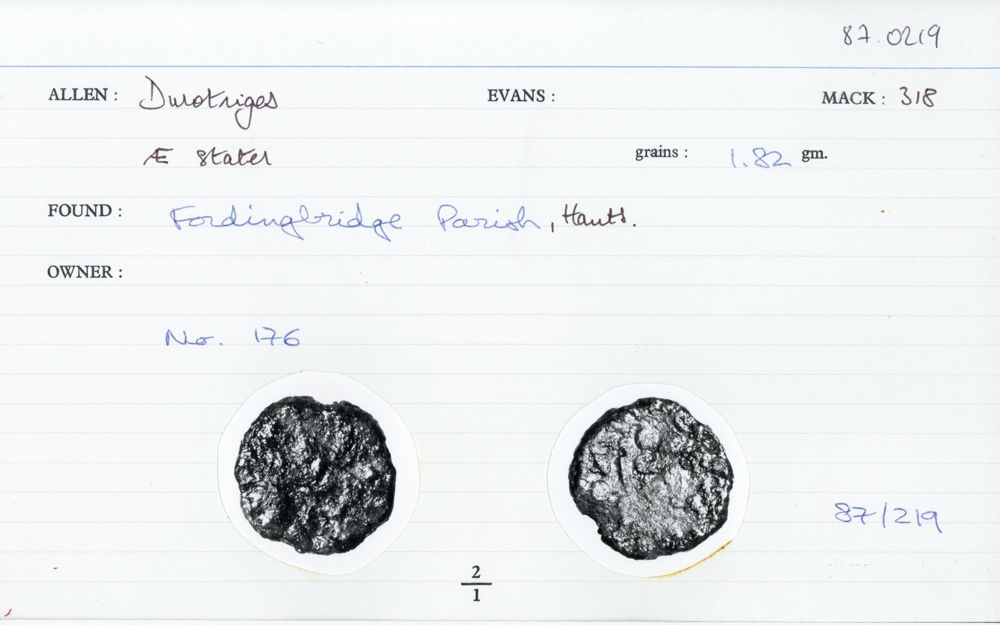 87.0219
ALLEN : Durotriges EVANS : MACK : 318
Æ stater grains : 1.82 gm.
FOUND : Fordingbridge Parish, Hants.
OWNER :
No. 176
87/219
2
1